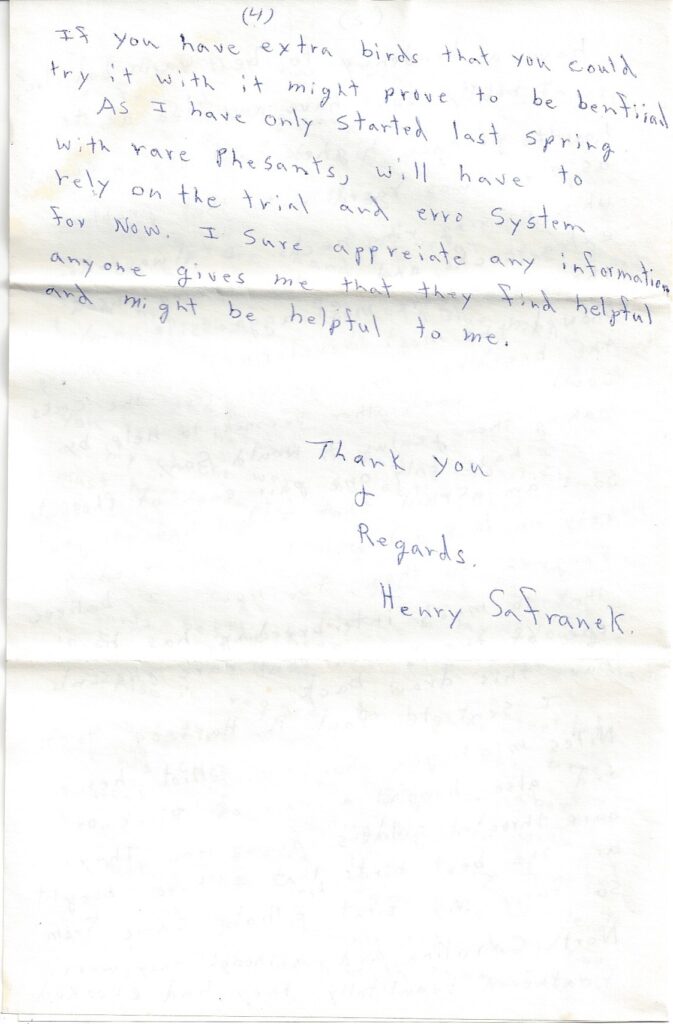 (4)
If you have extra birds that you could
try it with it might prove to be benfiial
As I have only started last spring
with rare Phesants, will have to
rely on the trial and erro System
for Now. I Sure appreiate any information
anyone gives me that they find helpful
and might be helpful to me.
Thank you
&
Regards.
Henry Safranek.